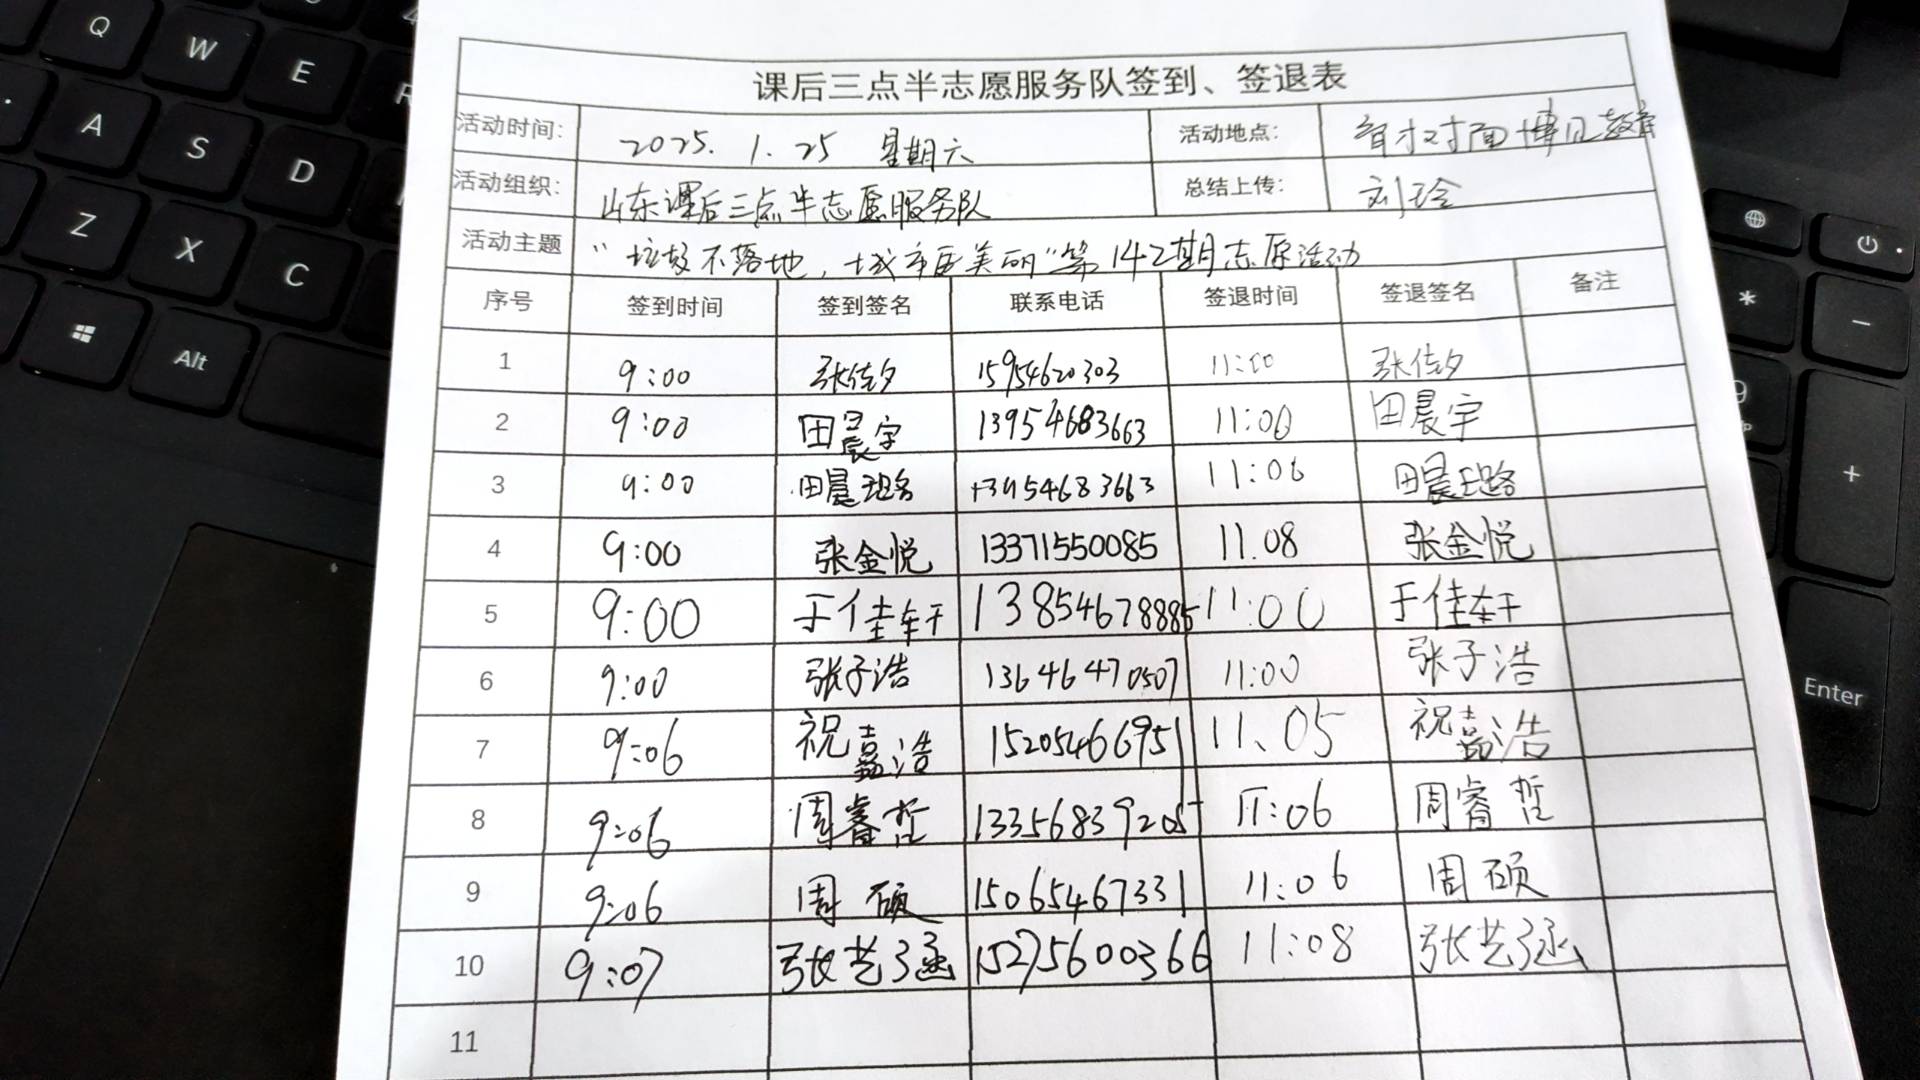 课后三点半志愿服务队签到、签退表
活动时间： 2025. 1. 25 星期六 活动地点： 育才对面博凡教育
活动组织： 山东课后三点半志愿服务队 总结上传： 刘玲
活动主题 “垃圾不落地，城市更美丽”第142期志愿活动
序号 签到时间 签到签名 联系电话 签退时间 签退签名 备注
1 9:00 张佳夕 15954620303 11:00 张佳夕
2 9:00 田晨宇 13954683663 11:00 田晨宇
3 9:00 田晨璐 13954683663 11:06 田晨璐
4 9:00 张金悦 13371550085 11.08 张金悦
5 9:00 于佳轩 13854678885 11:00 于佳轩
6 9:00 张子浩 13646470507 11:00 张子浩
7 9:06 祝嘉浩 15205466951 11、05 祝嘉浩
8 9:06 周睿哲 13356839205 11:06 周睿哲
9 9:06 周硕 15065467331 11:06 周硕
10 9:07 张艺涵 15275600366 11:08 张艺涵
11
Q
W
E
R
A
S
D
Z
X
C
Alt
*
-
+
Enter